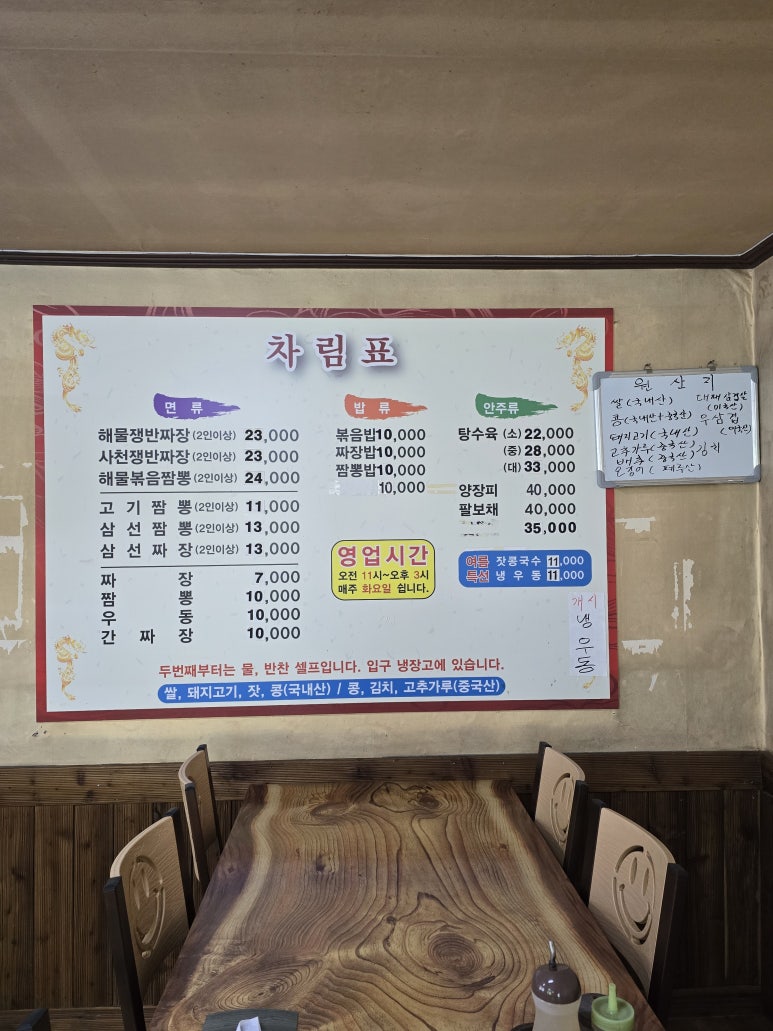 차림표
면 류
해물쟁반짜장(2인이상) 23,000
사천쟁반짜장(2인이상) 23,000
해물볶음짬뽕(2인이상) 24,000
고 기 짬 뽕(2인이상) 11,000
삼 선 짬 뽕(2인이상) 13,000
삼 선 짜 장(2인이상) 13,000
짜 장 7,000
짬 뽕 10,000
우 동 10,000
간 짜 장 10,000
밥 류
볶음밥10,000
짜장밥10,000
짬뽕밥10,000
10,000
안주류
탕수육 (소) 22,000
(중) 28,000
(대) 33,000
양장피 40,000
팔보채 40,000
35,000
영업시간
오전 11시~오후 3시
매주 화요일 쉽니다.
여름 잣콩국수 11,000
특선 냉 우 동 11,000
두번째부터는 물, 반찬 셀프입니다. 입구 냉장고에 있습니다.
쌀, 돼지고기, 잣, 콩(국내산) / 콩, 김치, 고추가루(중국산)
개시
냉
우
동
원 산 지
쌀(국내산)
콩(국내산+중국산)
돼지고기(국내산)
고추가루(중국산)
배추(중국산)
우삼겹
김치